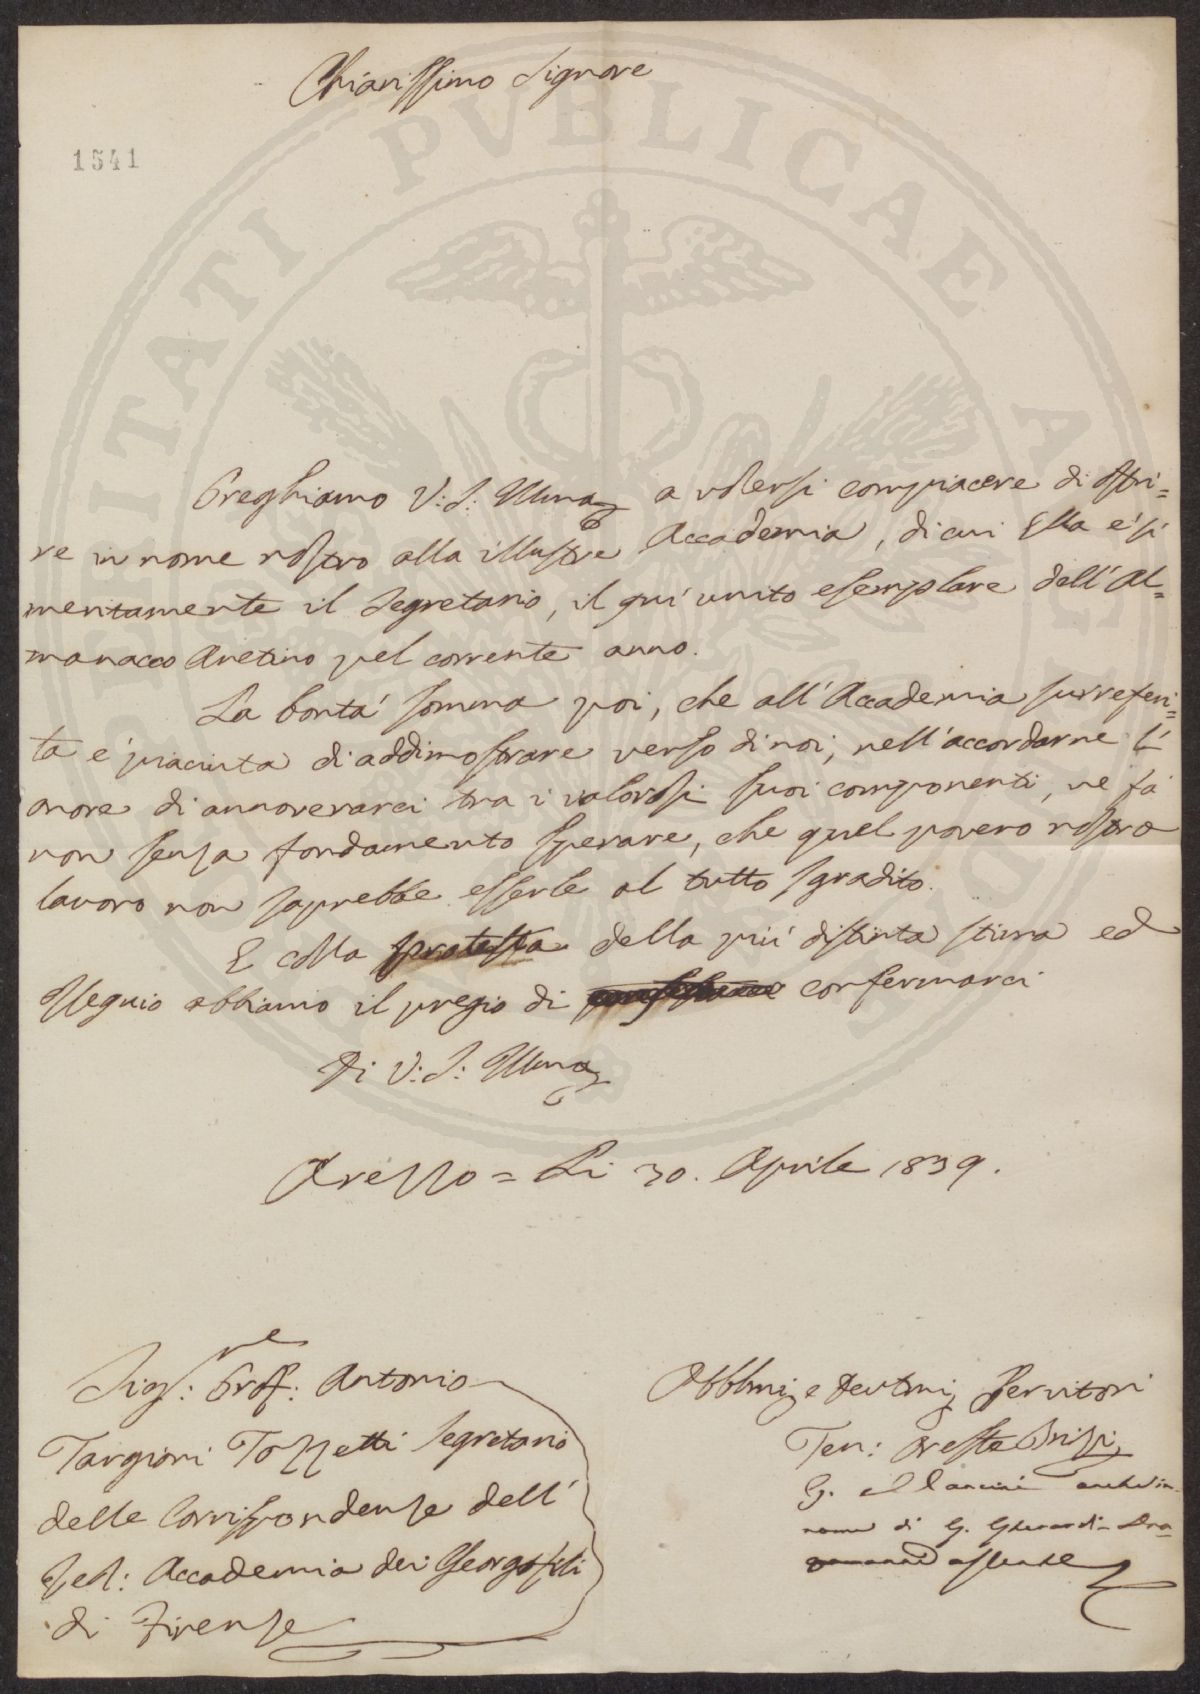 Chiarissimo Signore
1541
Preghiamo V: S: Illma a volersi compiacere di offri=
re in nome nostro alla illustre Accademia, di cui Ella e' sì
meritamente il Segretario, il quì unito esemplare dell' Al=
manacco Aretino pel corrente anno.
La bontà somma poi, che all' Accademia surreferi=
ta e' piaciuta di addimostrare verso di noi, nell' accordarne l'
onore di annoverarci tra i valorosi suoi componenti, ne fà
non senza fondamento sperare, che quel povero nostro
lavoro non saprebbe esserle al tutto sgradito.
E colla protesta della più distinta stima ed
ossequio abbiamo il pregio di confermarci
Di V: S: Illma
Arezzo = Li 30. Aprile 1839.
Sigr: Prof: Antonio
Targioni Tozzetti Segretario
delle Corrispondenze dell'
Accademia dei Georgofili
di Firenze
Obblmi e Devtmi Servitori
Ten: Oreste Brizi
G. Mancini anche in
nome di G. Gherardi-Dra=
gomanni assente
VTILITATI PVBLICAE